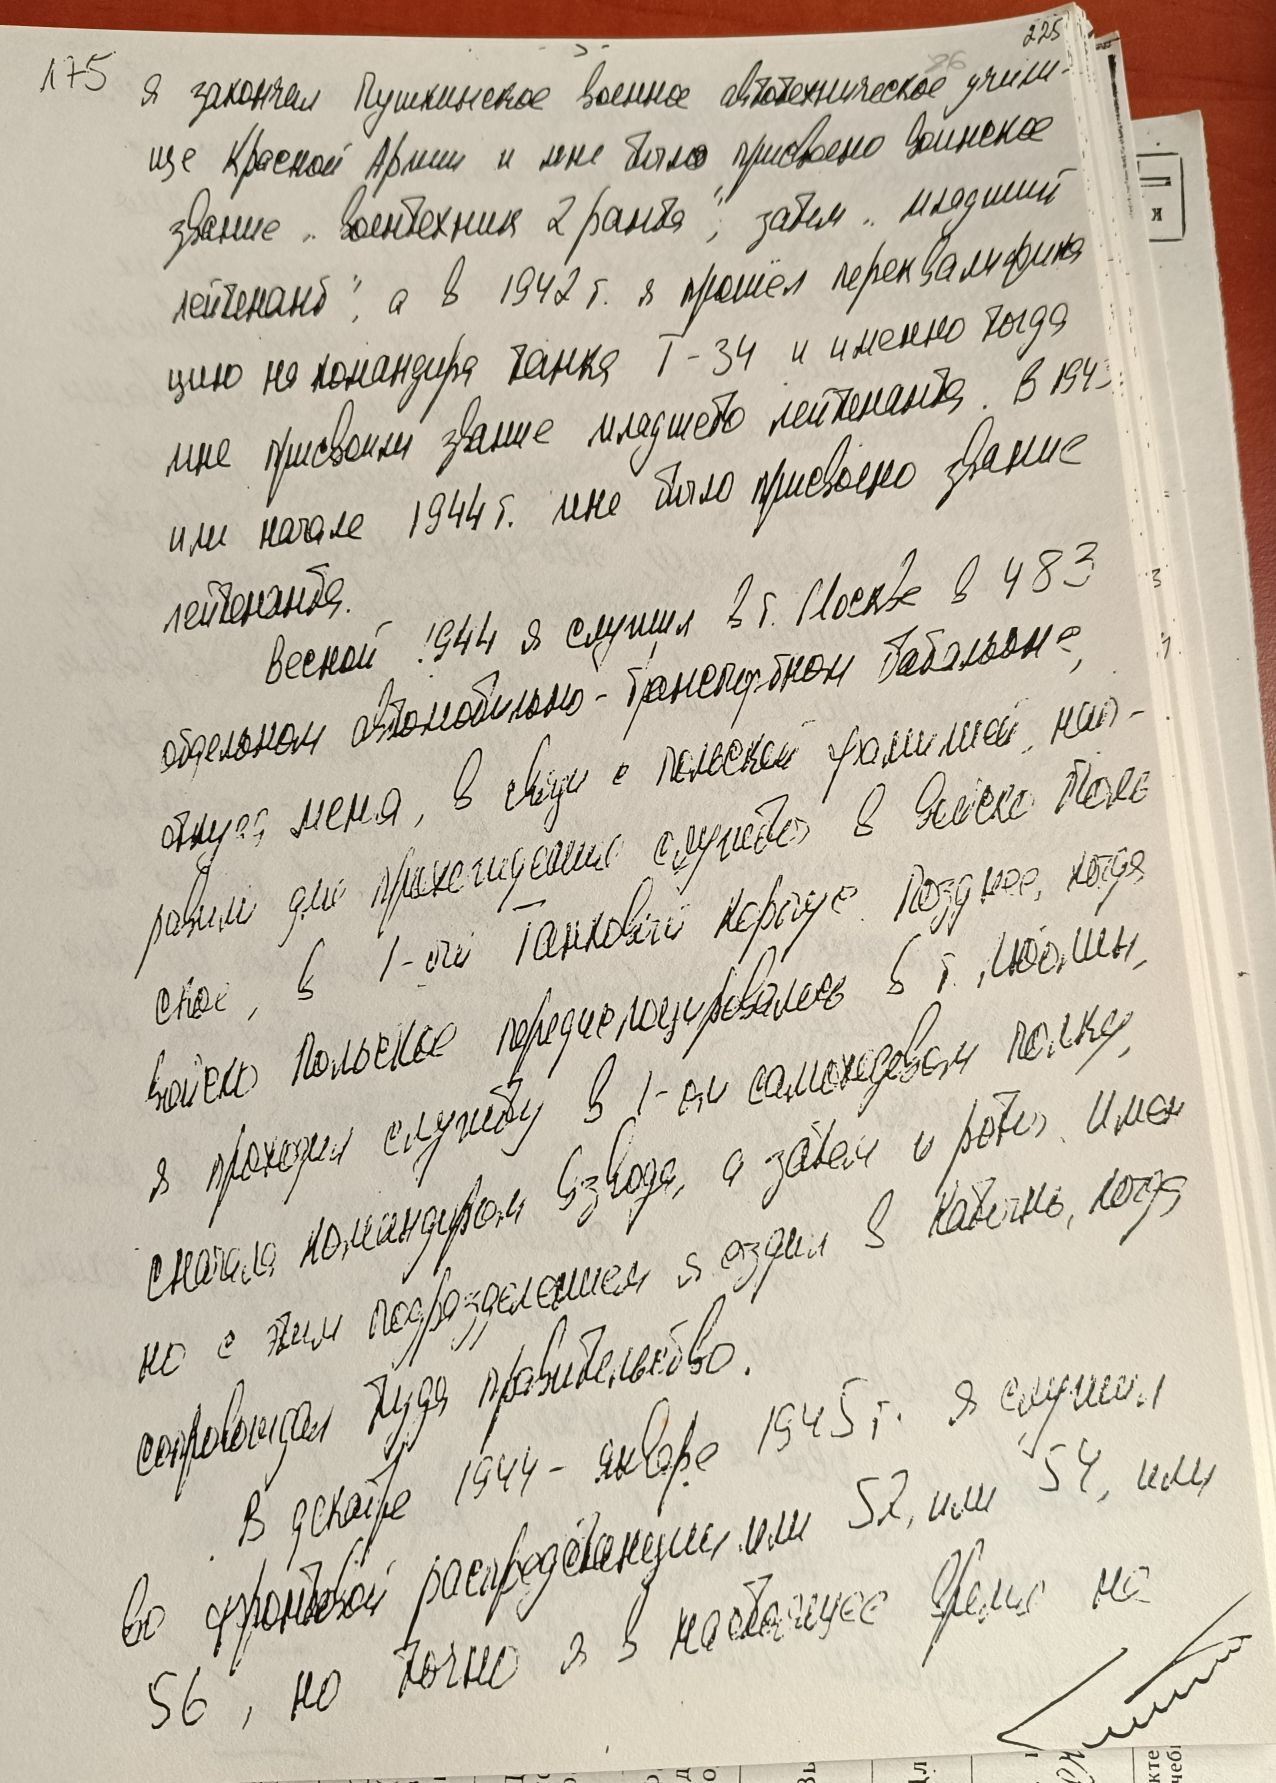 225
175
26
я закончил Пушкинское военное автотехническое учили-
ще Красной Армии и мне было присвоено воинское
звание „воентехник 2 ранга", затем „младший
лейтенант", а в 1942 г. я прошёл переквалифика
цию на командира танка Т-34 и именно тогда
мне присвоили звание младшего лейтенанта. В 1943
или начале 1944 г. мне было присвоено звание
лейтенанта.
Весной 1944 я служил в г. Москве в 483
отдельном автомобильно-транспортном батальоне,
откуда меня, в связи с польской фамилией, нап-
равили для прохождения службы в Войско Поль
ское, в 1-ый Танковый корпус. Позднее, когда
Войско Польское передислоцировалось в г. Люблин,
я проходил службу в 1-ом самоходном полку,
сначала командиром взвода, а затем и роты. Имен
но с этим подразделением я ездил в Катынь, когда
сопровождал туда правительство.
В декабре 1944 - январе 1945 г. я служил
во фронтовой распредстанции или 52, или 54, или
56, но точно я в настоящее время не